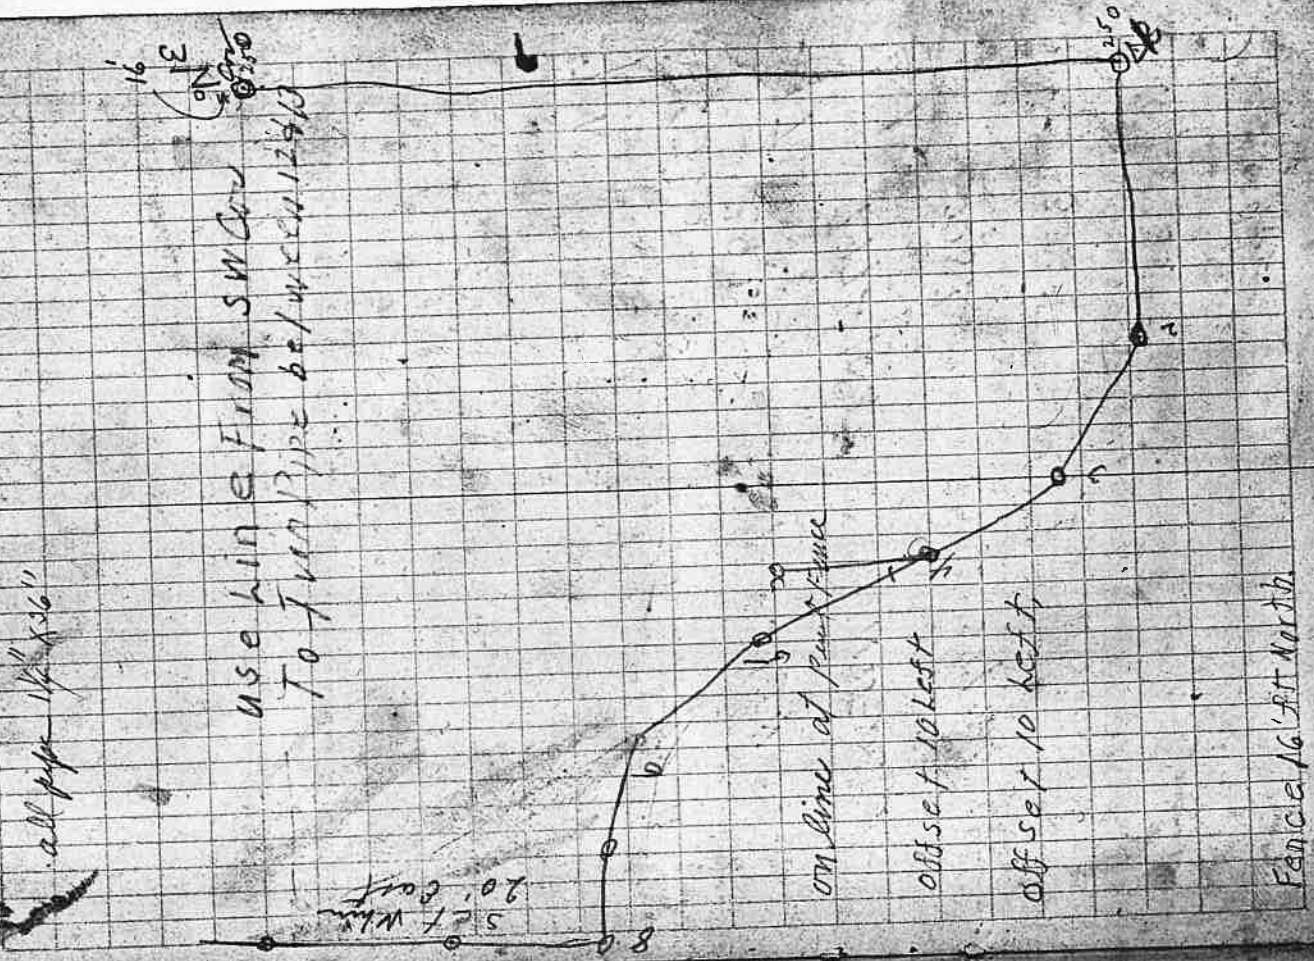 all pipe 1½" X36"
use Line From SW Cor
To Turn Pipe between 12 &13
16'
31
No
250
set
20' East
8
6
5
4
2
on line at Fence
offset 10 Left
offset 10 Left,
Fence 16' ft North.